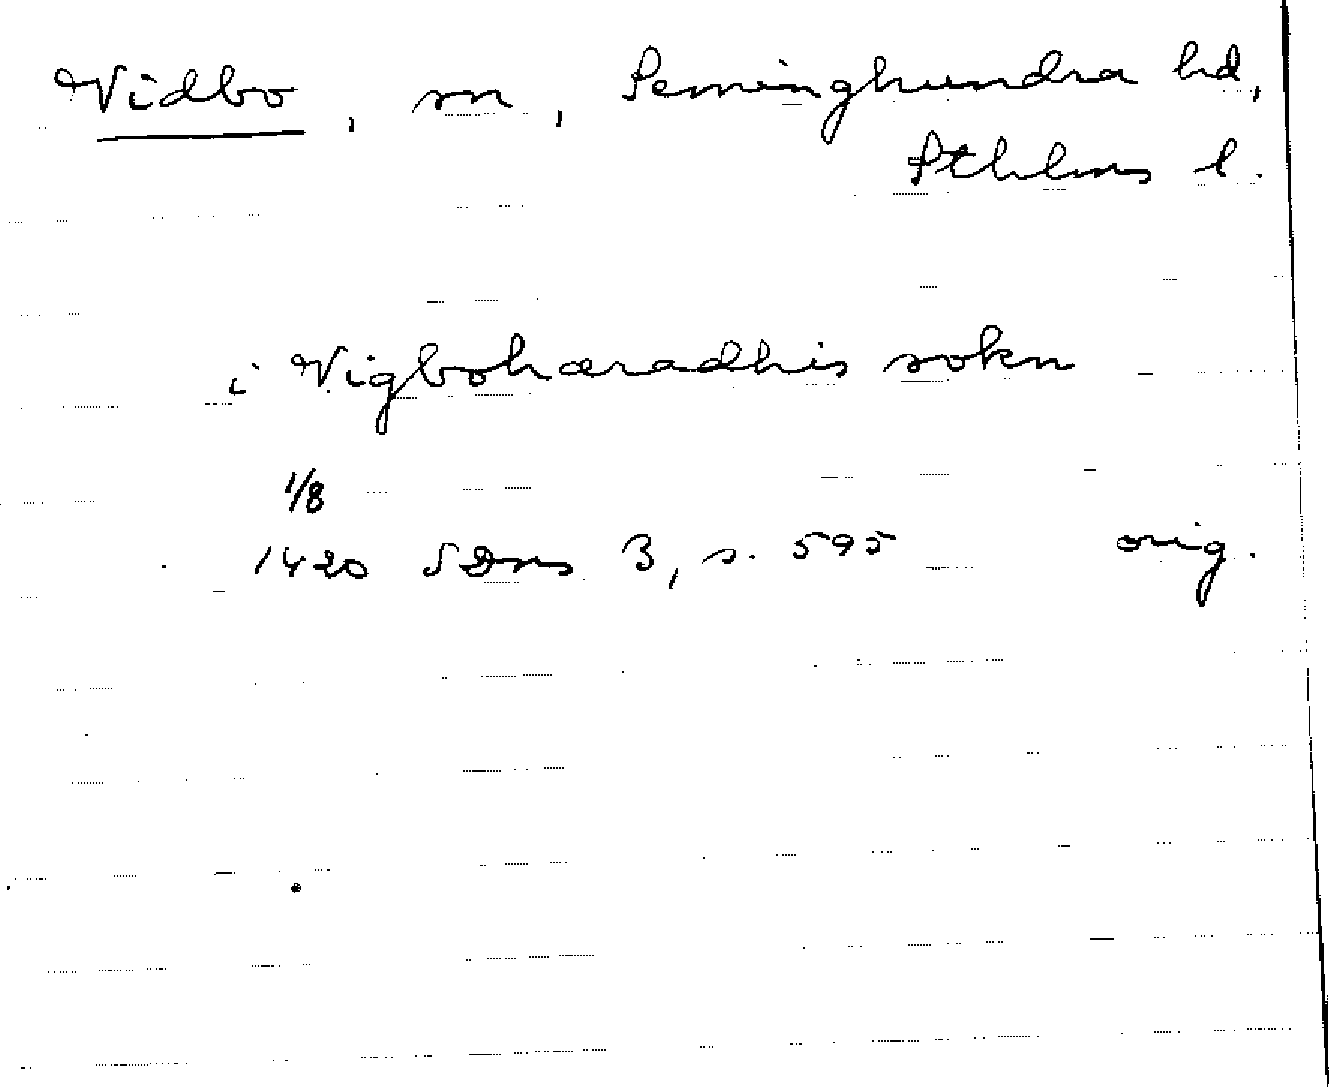 Vidbo, sn, Seminghundra hd,
Sthlms l.
i Vigboharadhis sokn
1/8
1420 SDns 3, s. 595 orig.